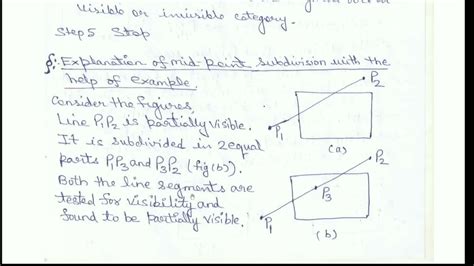 visible or invisible category.
Step 5 Stop
Explanation of mid point subdivision with the
help of example.
Consider the figures,
Line P1P2 is partially visible.
It is subdivided in 2 equal
parts P1P3 and P3P2 (fig(b)).
Both the line segments are
tested for visibility and
found to be partially visible.
P2
P1
(a)
P2
P3
P1
(b)